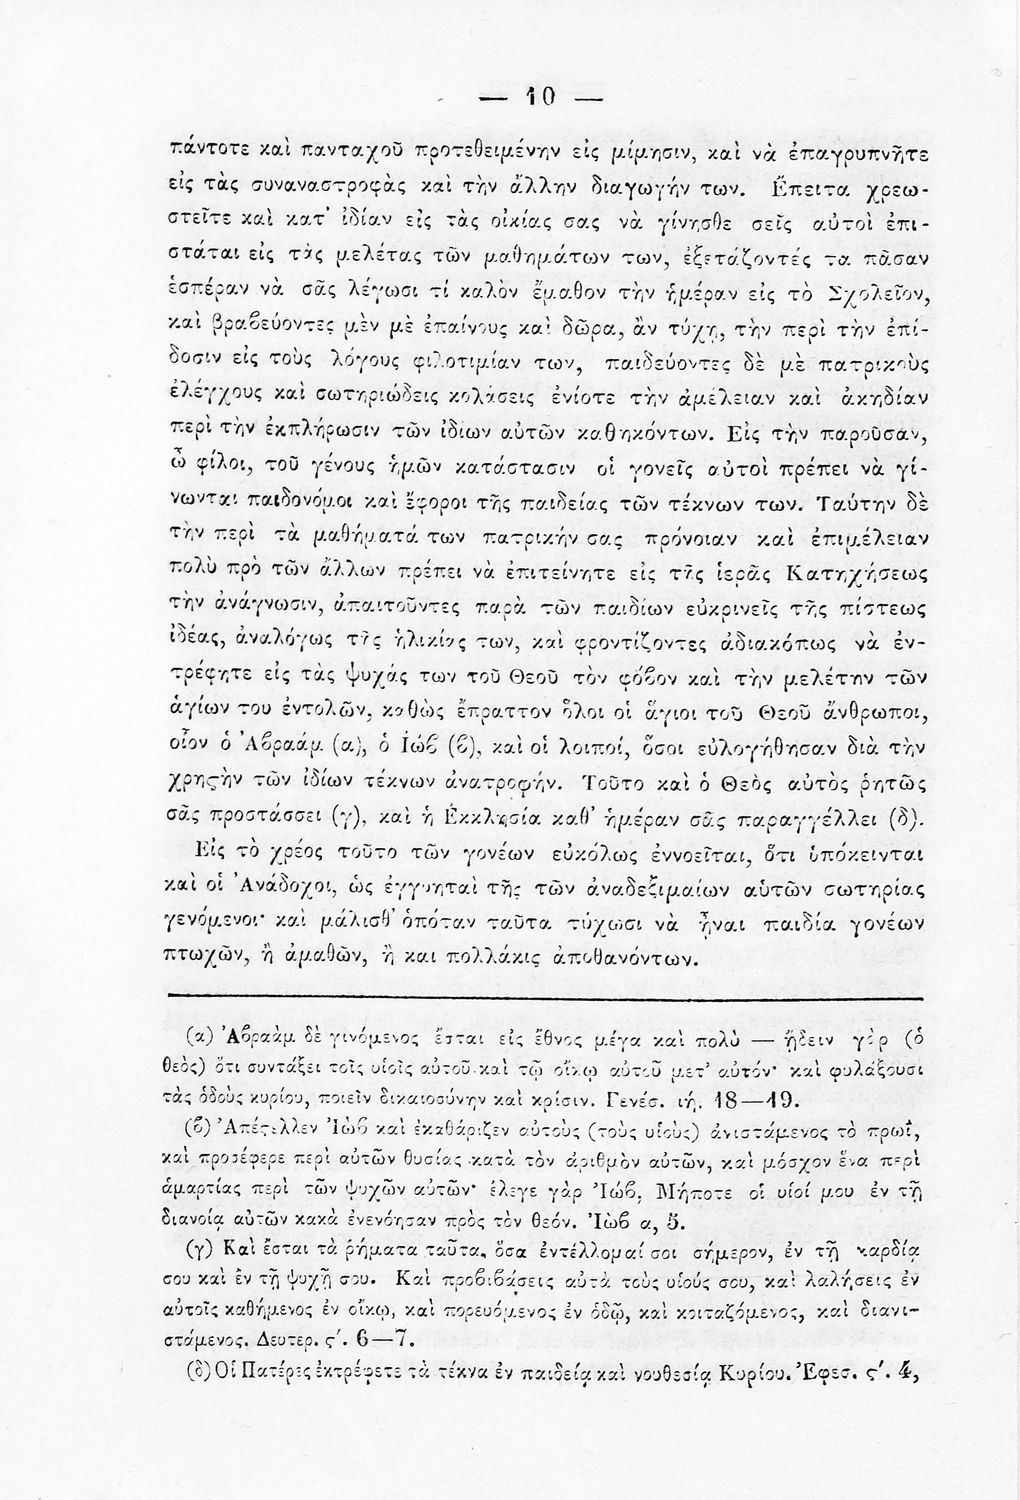 — 10 —
πάντοτε καὶ πανταχοῦ προτεθειμένην εἰς μίμησιν, καὶ νὰ ἐπαγρυπνῆτε
εἰς τὰς συναναστροφὰς καὶ τὴν ἄλλην διαγωγήν των. Ἔπειτα χρεω-
στεῖτε καὶ κατ' ἰδίαν εἰς τὰς οἰκίας σας νὰ γίνησθε σεῖς αὐτοὶ ἐπι-
στάται εἰς τὰς μελέτας τῶν μαθημάτων των, ἐξετάζοντές τα πᾶσαν
ἑσπέραν νὰ σᾶς λέγωσι τί καλὸν ἔμαθον τὴν ἡμέραν εἰς τὸ Σχολεῖον,
καὶ βραβεύοντες μὲν μὲ ἐπαίνους καὶ δῶρα, ἂν τύχῃ, τὴν περὶ τὴν ἐπί-
δοσιν εἰς τοὺς λόγους φιλοτιμίαν των, παιδεύοντες δὲ μὲ πατρικοὺς
ἐλέγχους καὶ σωτηριώδεις κολάσεις ἐνίοτε τὴν ἀμέλειαν καὶ ἀκηδίαν
περὶ τὴν ἐκπλήρωσιν τῶν ἰδίων αὐτῶν καθηκόντων. Εἰς τὴν παροῦσαν,
ὦ φίλοι, τοῦ γένους ἡμῶν κατάστασιν οἱ γονεῖς αὐτοὶ πρέπει νὰ γί-
νωνται παιδονόμοι καὶ ἔφοροι τῆς παιδείας τῶν τέκνων των. Ταύτην δὲ
τὴν περὶ τὰ μαθήματά των πατρικήν σας πρόνοιαν καὶ ἐπιμέλειαν
πολὺ πρὸ τῶν ἄλλων πρέπει νὰ ἐπιτείνητε εἰς τῆς ἱερᾶς Κατηχήσεως
τὴν ἀνάγνωσιν, ἀπαιτοῦντες παρὰ τῶν παιδίων εὐκρινεῖς τῆς πίστεως
ἰδέας, ἀναλόγως τῆς ἡλικίας των, καὶ φροντίζοντες ἀδιακόπως νὰ ἐν-
τρέφητε εἰς τὰς ψυχάς των τοῦ Θεοῦ τὸν φόβον καὶ τὴν μελέτην τῶν
ἁγίων του ἐντολῶν, καθὼς ἔπραττον ὅλοι οἱ ἅγιοι τοῦ Θεοῦ ἄνθρωποι,
οἷον ὁ Ἀβραάμ (α), ὁ Ἰώβ (β), καὶ οἱ λοιποί, ὅσοι εὐλογήθησαν διὰ τὴν
χρηστὴν τῶν ἰδίων τέκνων ἀνατροφήν. Τοῦτο καὶ ὁ Θεὸς αὐτὸς ῥητῶς
σᾶς προστάσσει (γ), καὶ ἡ Ἐκκλησία καθ' ἡμέραν σᾶς παραγγέλλει (δ).
Εἰς τὸ χρέος τοῦτο τῶν γονέων εὐκόλως ἐννοεῖται, ὅτι ὑπόκεινται
καὶ οἱ Ἀνάδοχοι, ὡς ἐγγυηταὶ τῆς τῶν ἀναδεξιμαίων αὑτῶν σωτηρίας
γενόμενοι· καὶ μάλισθ' ὁπόταν ταῦτα τύχωσι νὰ ἦναι παιδία γονέων
πτωχῶν, ἢ ἀμαθῶν, ἢ και πολλάκις ἀποθανόντων.
(α) Ἀβραὰμ δὲ γινόμενος ἔσται εἰς ἔθνος μέγα καὶ πολὺ — ᾔδειν γὰρ (ὁ
θεὸς) ὅτι συντάξει τοῖς υἱοῖς αὐτοῦ καὶ τῷ οἴκῳ αὐτοῦ μετ' αὐτόν· καὶ φυλάξουσι
τὰς ὁδοὺς κυρίου, ποιεῖν δικαιοσύνην καὶ κρίσιν. Γενέσ. ιή. 18—19.
(β) Ἀπέστελλεν Ἰὼβ καὶ ἐκαθάριζεν αὐτοὺς (τοὺς υἱοὺς) ἀνιστάμενος τὸ πρωΐ,
καὶ προσέφερε περὶ αὐτῶν θυσίας κατὰ τὸν ἀριθμὸν αὐτῶν, καὶ μόσχον ἕνα περὶ
ἁμαρτίας περὶ τῶν ψυχῶν αὐτῶν· ἔλεγε γὰρ Ἰώβ, Μήποτε οἱ υἱοί μου ἐν τῇ
διανοίᾳ αὐτῶν κακὰ ἐνενόησαν πρὸς τὸν θεόν. Ἰὼβ α, 5.
(γ) Καὶ ἔσται τὰ ῥήματα ταῦτα, ὅσα ἐντέλλομαί σοι σήμερον, ἐν τῇ καρδίᾳ
σου καὶ ἐν τῇ ψυχῇ σου. Καὶ προβιβάσεις αὐτὰ τοὺς υἱούς σου, καὶ λαλήσεις ἐν
αὐτοῖς καθήμενος ἐν οἴκῳ, καὶ πορευόμενος ἐν ὁδῷ, καὶ κοιταζόμενος, καὶ διανι-
στάμενος. Δευτερ. ϛ'. 6—7.
(δ) Οἱ Πατέρες ἐκτρέφετε τὰ τέκνα ἐν παιδείᾳ καὶ νουθεσίᾳ Κυρίου. Ἐφεσ. ϛ'. 4,